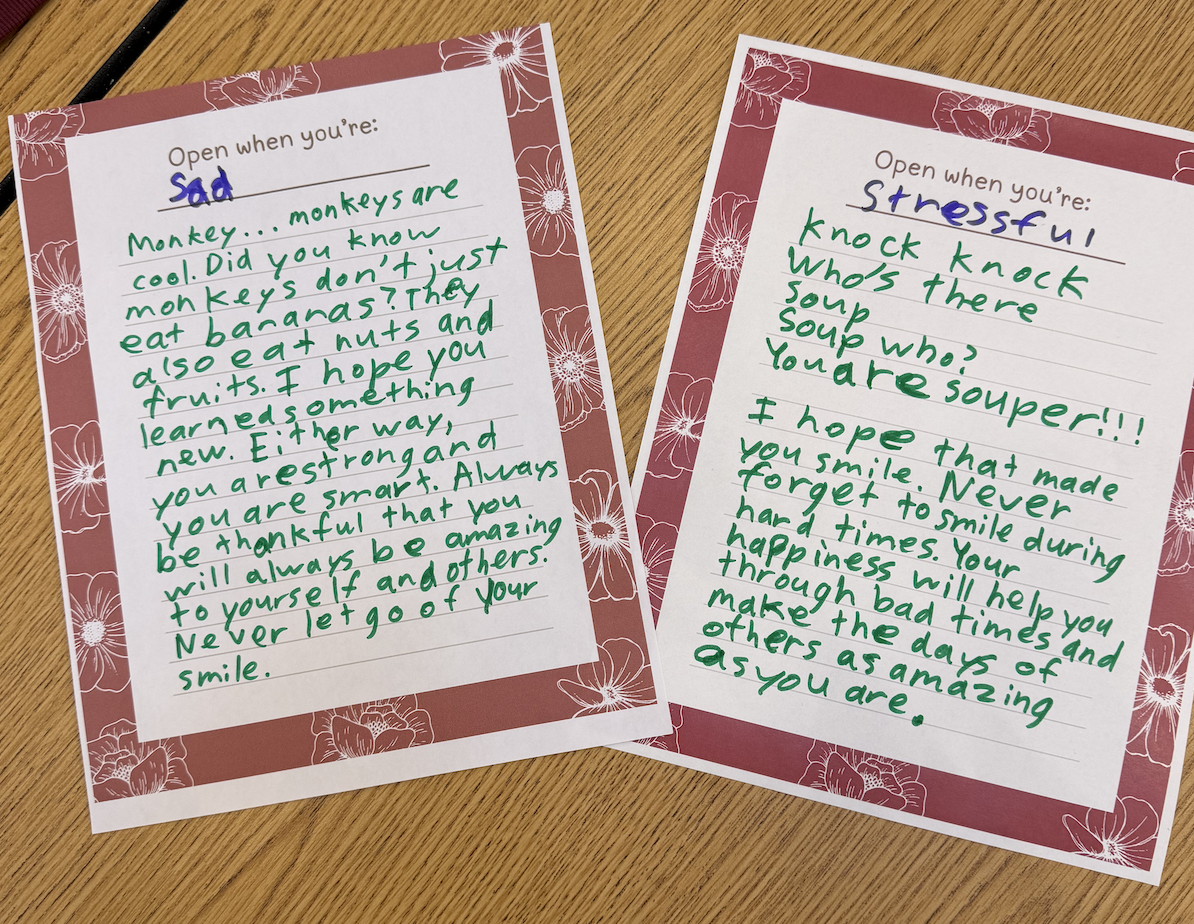 Open when you're:
Sad
Monkey... monkeys are
cool. Did you know
monkeys don't just
eat bananas? They
also eat nuts and
fruits. I hope you
learned something
new. Either way,
you are strong and
you are smart. Always
be thankful that you
will always be amazing
to yourself and others.
Never let go of your
smile.
Open when you're:
Stressful
Knock knock
Who's there
soup
Soup who?
You are souper!!!
I hope that made
you smile. Never
forget to smile during
hard times. Your
happiness will help you
through bad times and
make the days of
others as amazing
as you are.